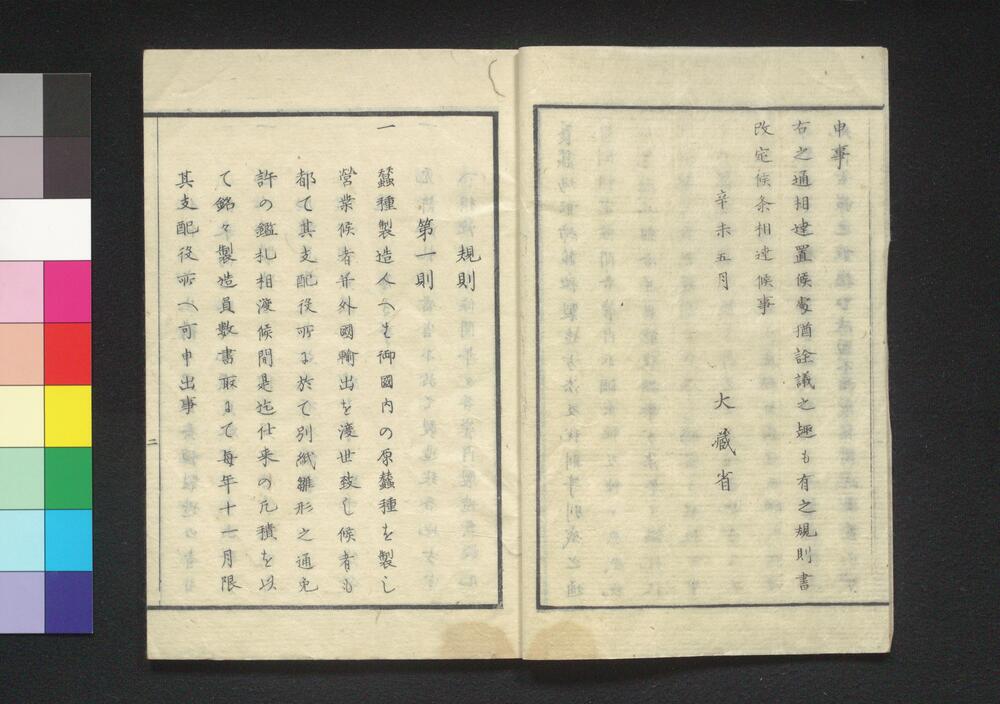 申事
右之通相達置候處猶詮議之趣も有之規則書
改定候条相達候事
辛未五月
大藏省
規則
第一則
一 蠶種製造人へも御國内の原蠶種を製し
営業候者并外國輸出を渡世致し候者も
都て其支配役所に於て別紙雛形之通免
許の鑑札相渡候間是迄仕来の凡積を以
て銘々製造員數書取にて毎年十一月限
其支配役所へ可申出事
二